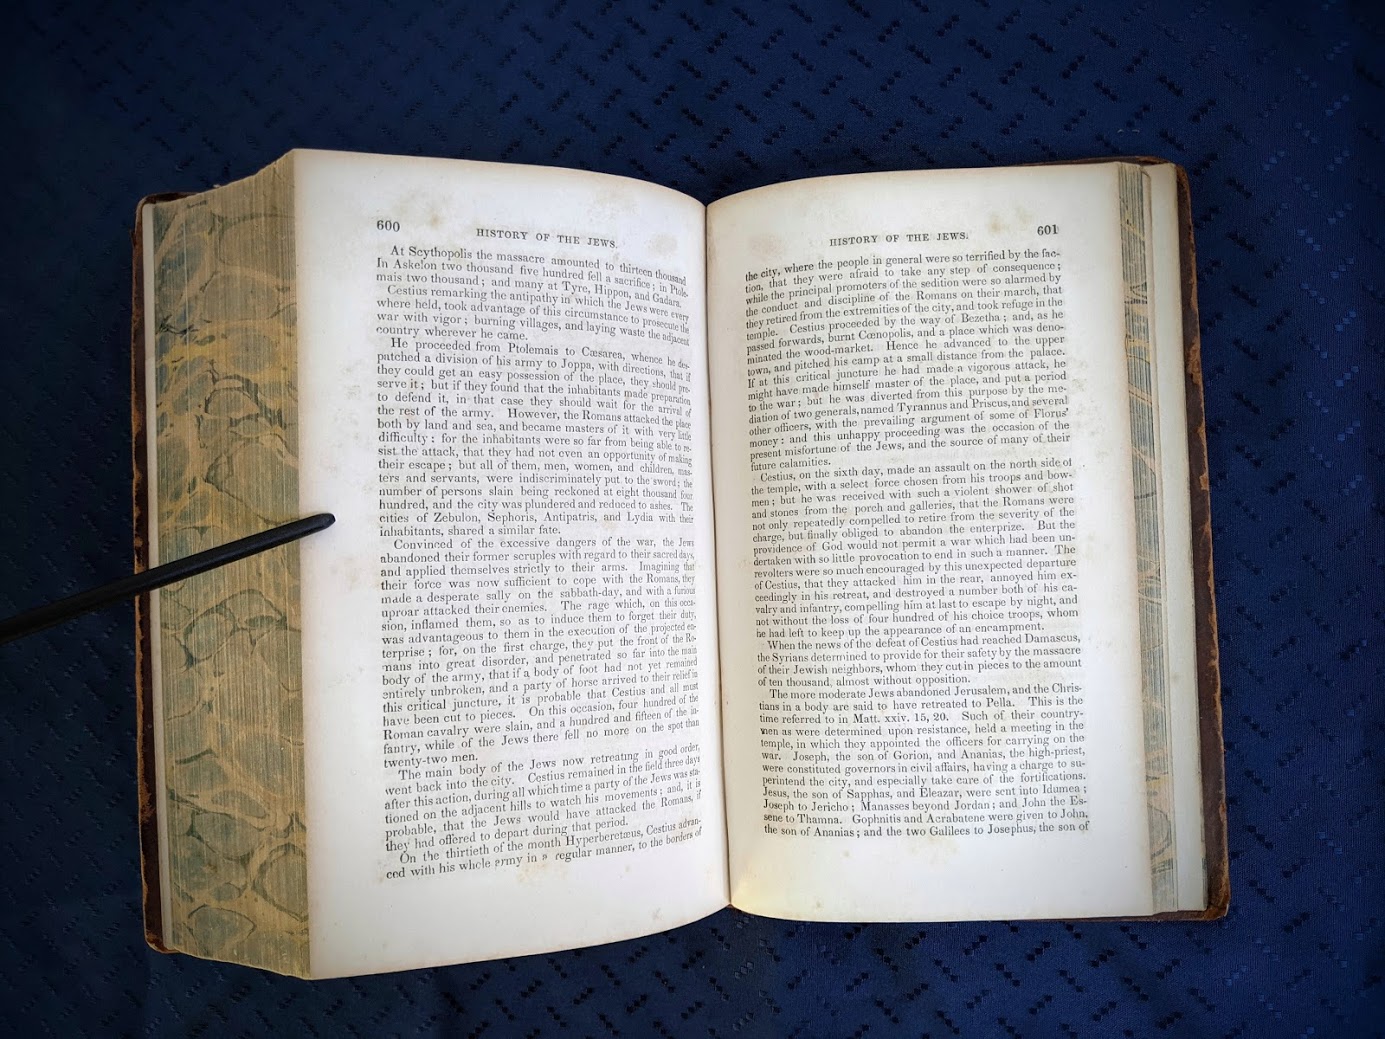 600
HISTORY OF THE JEWS.
At Scythopolis the massacre amounted to thirteen thousand
In Askelon two thousand five hundred fell a sacrifice; in Ptole-
mais two thousand; and many at Tyre, Hippon, and Gadara.
Cestius remarking the antipathy in which the Jews were every
where held, took advantage of this circumstance to prosecute the
war with vigor; burning villages, and laying waste the adjacent
country wherever he came.
He proceeded from Ptolemais to Cæsarea, whence he des-
patched a division of his army to Joppa, with directions, that if
they could get an easy possession of the place, they should pre-
serve it; but if they found that the inhabitants made preparation
to defend it, in that case they should wait for the arrival of
the rest of the army. However, the Romans attacked the place
both by land and sea, and became masters of it with very little
difficulty: for the inhabitants were so far from being able to re-
sist the attack, that they had not even an opportunity of making
their escape; but all of them, men, women, and children, mas-
ters and servants, were indiscriminately put to the sword; the
number of persons slain being reckoned at eight thousand four
hundred, and the city was plundered and reduced to ashes. The
cities of Zebulon, Sephoris, Antipatris, and Lydia with their
inhabitants, shared a similar fate.
Convinced of the excessive dangers of the war, the Jews
abandoned their former scruples with regard to their sacred days,
and applied themselves strictly to their arms. Imagining that
their force was now sufficient to cope with the Romans, they
made a desperate sally on the sabbath-day, and with a furious
uproar attacked their enemies. The rage which, on this occa-
sion, inflamed them, so as to induce them to forget their duty,
was advantageous to them in the execution of the projected en-
terprise; for, on the first charge, they put the front of the Ro-
mans into great disorder, and penetrated so far into the main
body of the army, that if a body of foot had not yet remained
entirely unbroken, and a party of horse arrived to their relief in
this critical juncture, it is probable that Cestius and all must
have been cut to pieces. On this occasion, four hundred of the
Roman cavalry were slain, and a hundred and fifteen of the in-
fantry, while of the Jews there fell no more on the spot than
twenty-two men.
The main body of the Jews now retreating in good order,
went back into the city. Cestius remained in the field three days
after this action, during all which time a party of the Jews was sta-
tioned on the adjacent hills to watch his movements; and, it is
probable, that the Jews would have attacked the Romans, if
they had offered to depart during that period.
On the thirtieth of the month Hyperberetæus, Cestius advan-
ced with his whole army in a regular manner, to the borders of
HISTORY OF THE JEWS.
601
the city, where the people in general were so terrified by the fac-
tion, that they were afraid to take any step of consequence;
while the principal promoters of the sedition were so alarmed by
the conduct and discipline of the Romans on their march, that
they retired from the extremities of the city, and took refuge in the
temple. Cestius proceeded by the way of Bezetha; and, as he
passed forwards, burnt Cœnopolis, and a place which was deno-
minated the wood-market. Hence he advanced to the upper
town, and pitched his camp at a small distance from the palace.
If at this critical juncture he had made a vigorous attack, he
might have made himself master of the place, and put a period
to the war; but he was diverted from this purpose by the me-
diation of two generals, named Tyrannus and Priscus, and several
other officers, with the prevailing argument of some of Florus'
money: and this unhappy proceeding was the occasion of the
present misfortune of the Jews, and the source of many of their
future calamities.
Cestius, on the sixth day, made an assault on the north side of
the temple, with a select force chosen from his troops and bow-
men; but he was received with such a violent shower of shot
and stones from the porch and galleries, that the Romans were
not only repeatedly compelled to retire from the severity of the
charge, but finally obliged to abandon the enterprize. But the
providence of God would not permit a war which had been un-
dertaken with so little provocation to end in such a manner. The
revolters were so much encouraged by this unexpected departure
of Cestius, that they attacked him in the rear, annoyed him ex-
ceedingly in his retreat, and destroyed a number both of his ca-
valry and infantry, compelling him at last to escape by night, and
not without the loss of four hundred of his choice troops, whom
he had left to keep up the appearance of an encampment.
When the news of the defeat of Cestius had reached Damascus,
the Syrians determined to provide for their safety by the massacre
of their Jewish neighbors, whom they cut in pieces to the amount
of ten thousand, almost without opposition.
The more moderate Jews abandoned Jerusalem, and the Chris-
tians in a body are said to have retreated to Pella. This is the
time referred to in Matt. xxiv. 15, 20. Such of their country-
men as were determined upon resistance, held a meeting in the
temple, in which they appointed the officers for carrying on the
war. Joseph, the son of Gorion, and Ananias, the high-priest,
were constituted governors in civil affairs, having a charge to su-
perintend the city, and especially take care of the fortifications.
Jesus, the son of Sapphas, and Eleazar, were sent into Idumea;
Joseph to Jericho; Manasses beyond Jordan; and John the Es-
sene to Thamna. Gophnitis and Acrabatene were given to John,
the son of Ananias; and the two Galilees to Josephus, the son of